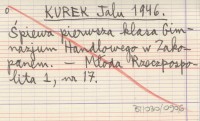 KUREK Jalu 1946.
Śpiewa pierwsza klasa Gim-
nazjum Handlowego w Zako-
panem. — Młoda Rzeczypospo-
lita 1, nr 17.